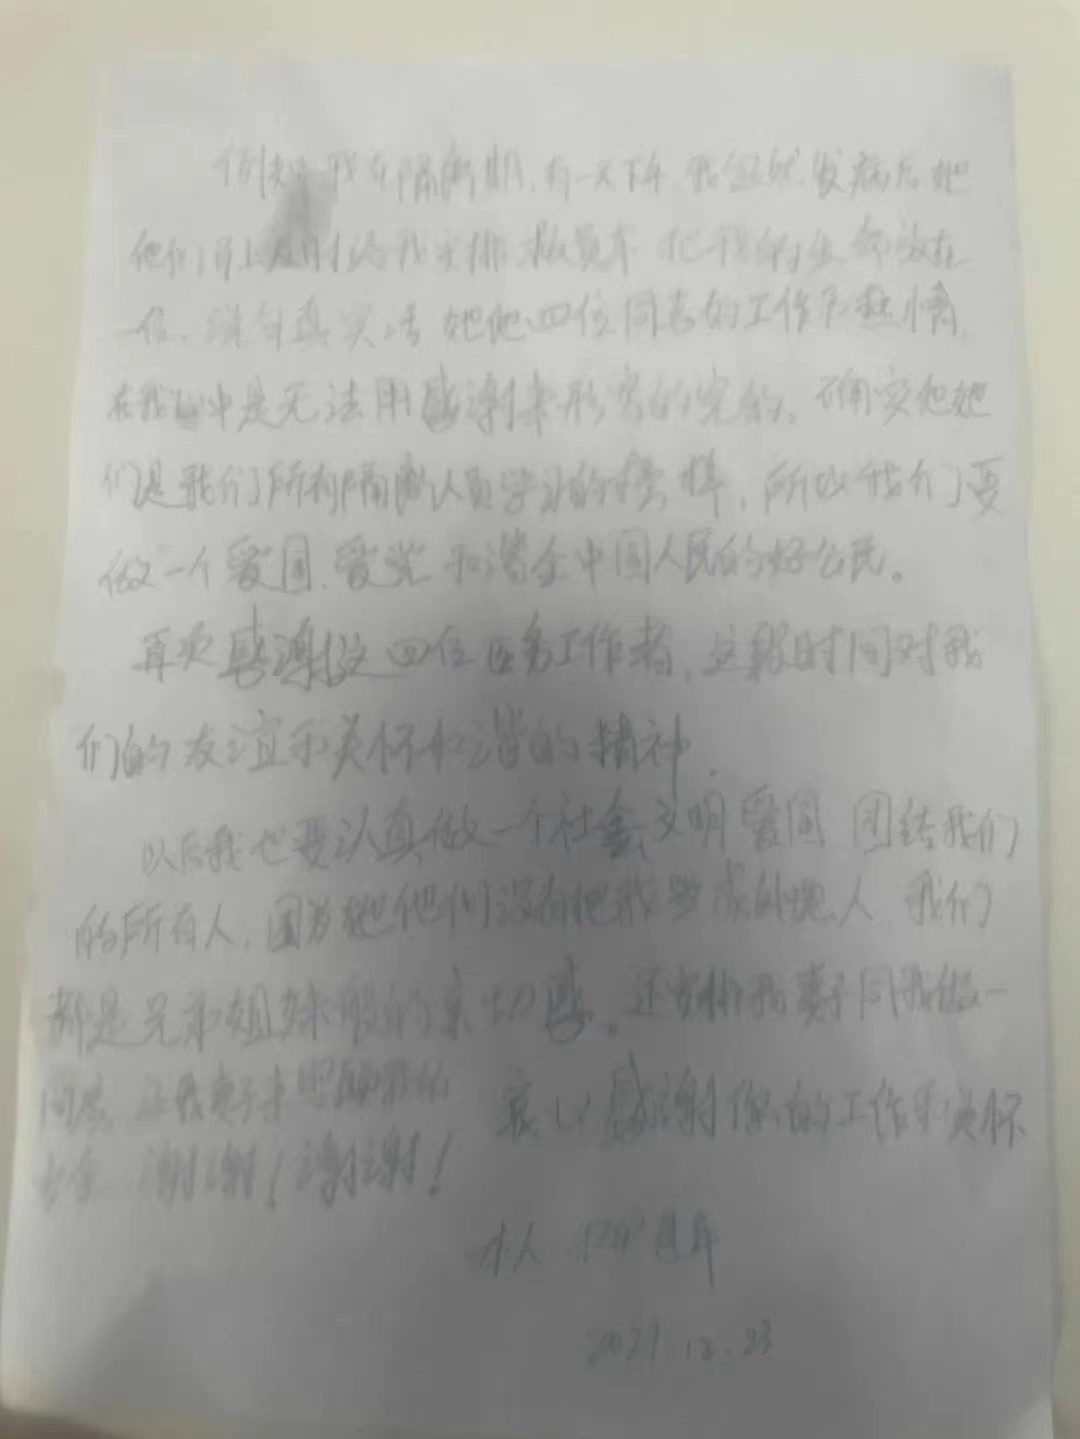 例如 我在隔离期,有一天下午 我忽然发病后她
他们马上及时给我安排救护车 把我的生命放在
位,说句真实话 她他四位同志的工作和热情
在我心中是无法用感谢来形容的完的。确实他她
们是我们所有隔离人员学习的榜样,所以我们要
做一个爱国、爱党 和谐全中国人民的好公民。
再次感谢这四位医务工作者,这段时间对我
们的友谊和关怀和谐的精神.
以后我也要认真做一个社会文明 爱国 团结我们
的所有人,因为她他们没有把我当成外地人 我们
都是兄弟姐妹般的亲切感。还安排我妻子同我做一
妻子来照顾我的
谢谢!谢谢!
衷心感谢你们的工作和关怀
本人
2021.12.23